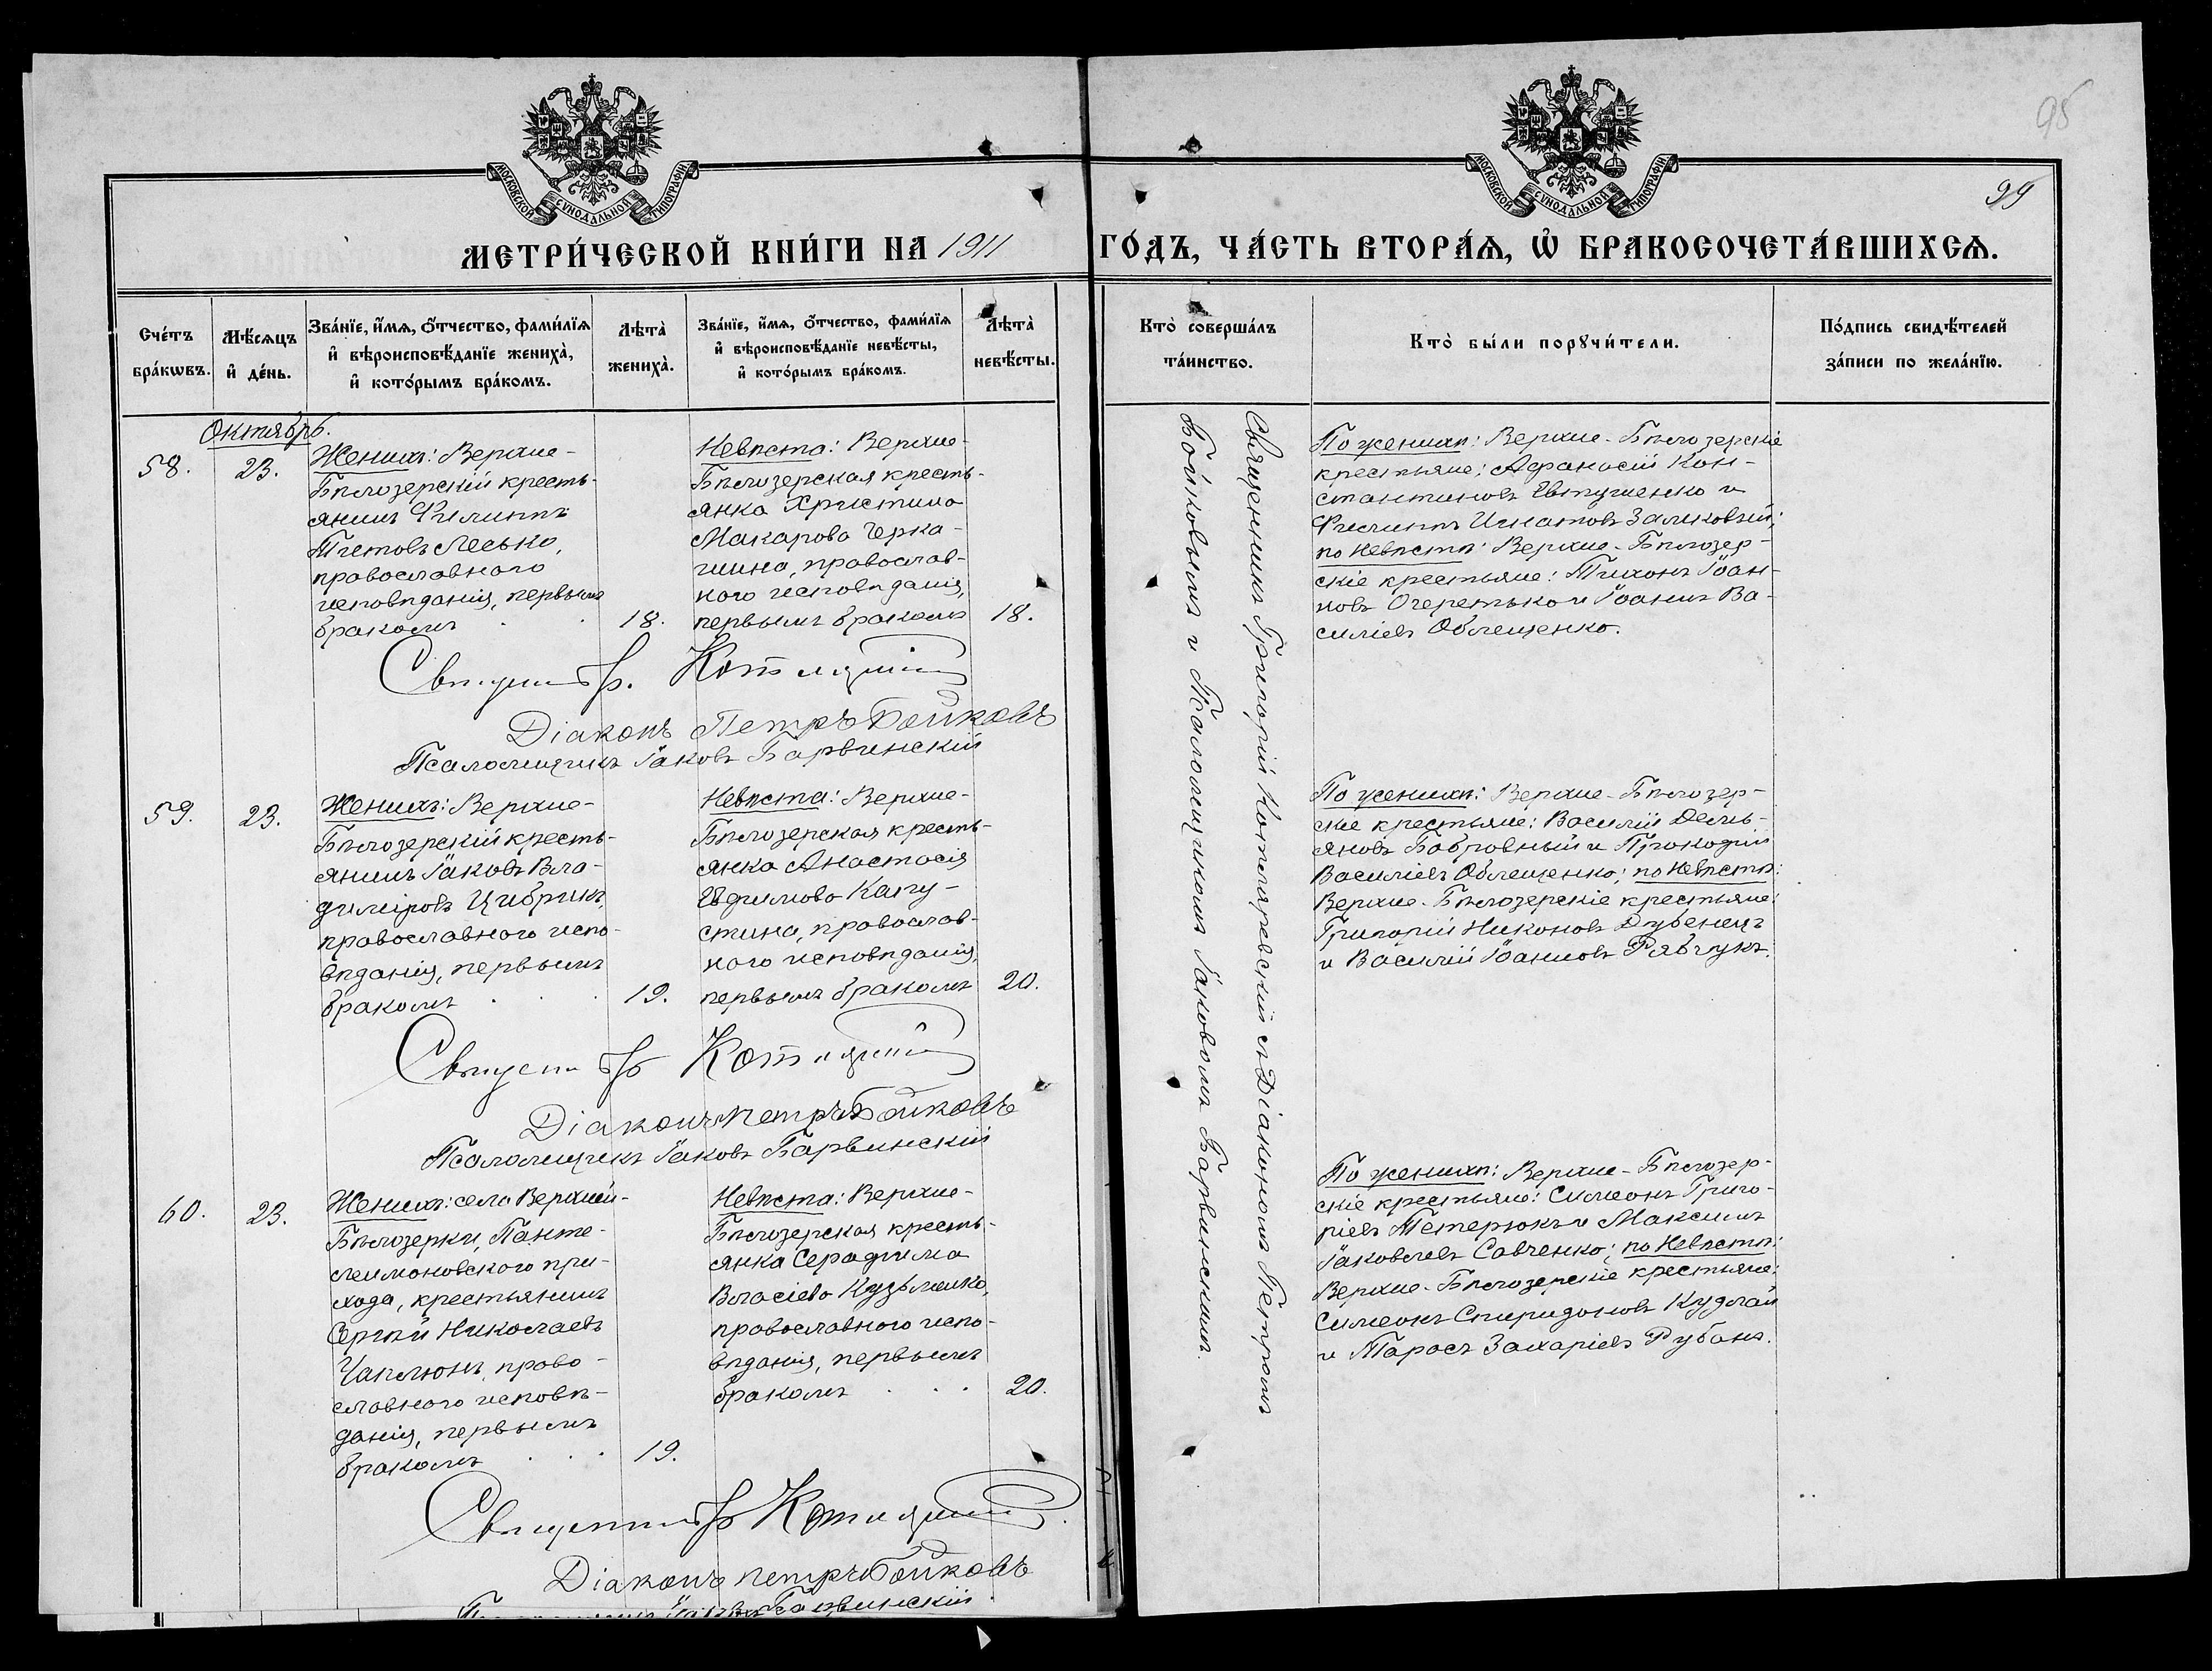 95
99
МОСКОВСКОЙ СѴНОДАЛЬНОЙ ТИПОГРАФІИ
МОСКОВСКОЙ СѴНОДАЛЬНОЙ ТИПОГРАФІИ
МЕТРИ́ЧЕСКОЙ КНИ́ГИ НА 1911 ГО́ДЪ, ЧА́СТЬ ВТОРА́Ѧ, Ѽ БРАКОСОЧЕТА́ВШИХСѦ.
Сче́тъ
бра́кѡвъ.
Мѣ́сѧцъ
и҆ де́нь.
Зва́нїе, и҆́мѧ, ѻ҆́тчество, фами́лїѧ
и҆ вѣроисповѣ́данїе жениха̀,
и҆ кото́рымъ бра́комъ.
Лѣта̀
жениха̀.
Зва́нїе, и҆́мѧ, ѻ҆́тчество, фами́лїѧ
и҆ вѣроисповѣ́данїе невѣ́сты,
и҆ кото́рымъ бра́комъ.
Лѣта̀
невѣ́сты.
Кто̀ соверша́лъ
та́инство.
Кто̀ бы́ли порꙋчи́тели.
По́дпись свидѣ́телей
за́писи по жела́нїю.
Октябрь.
58.
23.
Женихъ: Верхне-
Бѣлозерскій кресть-
янинъ Филиппъ
Титовъ Лесько,
православнаго
исповѣданія, первымъ
бракомъ
18.
Невѣста: Верхне-
Бѣлозерская кресть-
янка Христина
Макарова Черка-
шина, православ-
наго исповѣданія,
первымъ бракомъ
18.
По женихѣ: Верхне-Бѣлозерскіе
крестьяне: Афанасій Кон-
стантиновъ Евтушенко и
Филиппъ Игнатовъ Заликовый;
по невѣстѣ: Верхне-Бѣлозер-
скіе крестьяне: Тихонъ Іоан-
новъ Очеретько и Іоаннъ Ва-
силіевъ Облещенко.
Священникъ Гр. Котляревскій
Діаконъ Петръ Бойковъ
Псаломщикъ Іаковъ Барвинскій
59.
23.
Женихъ: Верхне-
Бѣлозерскій кресть-
янинъ Іаковъ Вла-
диміровъ Цибрикъ,
православнаго испо-
вѣданія, первымъ
бракомъ
19.
Невѣста: Верхне-
Бѣлозерская кресть-
янка Анастасія
Ефимова Капу-
стина, православ-
наго исповѣданія,
первымъ бракомъ
20.
По женихѣ: Верхне-Бѣлозер-
скіе крестьяне: Василій Демь-
яновъ Бобровный и Прокофій
Василіевъ Облещенко; по невѣстѣ:
Верхне-Бѣлозерскіе крестьяне:
Григорій Никоновъ Дубенецъ
и Василій Іоанновъ Рябчукъ.
Священникъ Гр. Котляревскій
Діаконъ Петръ Бойковъ
Псаломщикъ Іаковъ Барвинскій
60.
23.
Женихъ: села Верхней-
Бѣлозерки, Панте-
леимоновскаго при-
хода, крестьянинъ
Сергѣй Николаевъ
Чаплюнъ, право-
славнаго исповѣ-
данія, первымъ
бракомъ
19.
Невѣста: Верхне-
Бѣлозерская кресть-
янка Серафима
Власіева Кузьменко,
православнаго испо-
вѣданія, первымъ
бракомъ
20.
По женихѣ: Верхне-Бѣлозер-
скіе крестьяне: Симеонъ Григо-
ріевъ Тетерюкъ и Максимъ
Іаковлевъ Савченко; по невѣстѣ:
Верхне-Бѣлозерскіе крестьяне:
Симеонъ Спиридоновъ Кудлай
и Тарасъ Захаріевъ Рубанъ.
Священникъ Гр. Котляревскій
Діаконъ Петръ Бойковъ
Псаломщикъ Іаковъ Барвинскій
Священникъ Григорій Котляревскій съ Діакономъ Петромъ
Бойковымъ и Псаломщикомъ Іаковомъ Барвинскимъ.